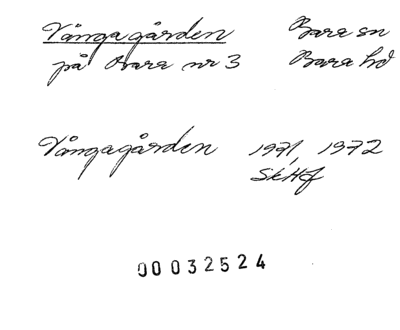 Vångagården Bara sn
på Bara nr 3 Bara hd
Vångagården 1971, 1972
SkHf
00032524